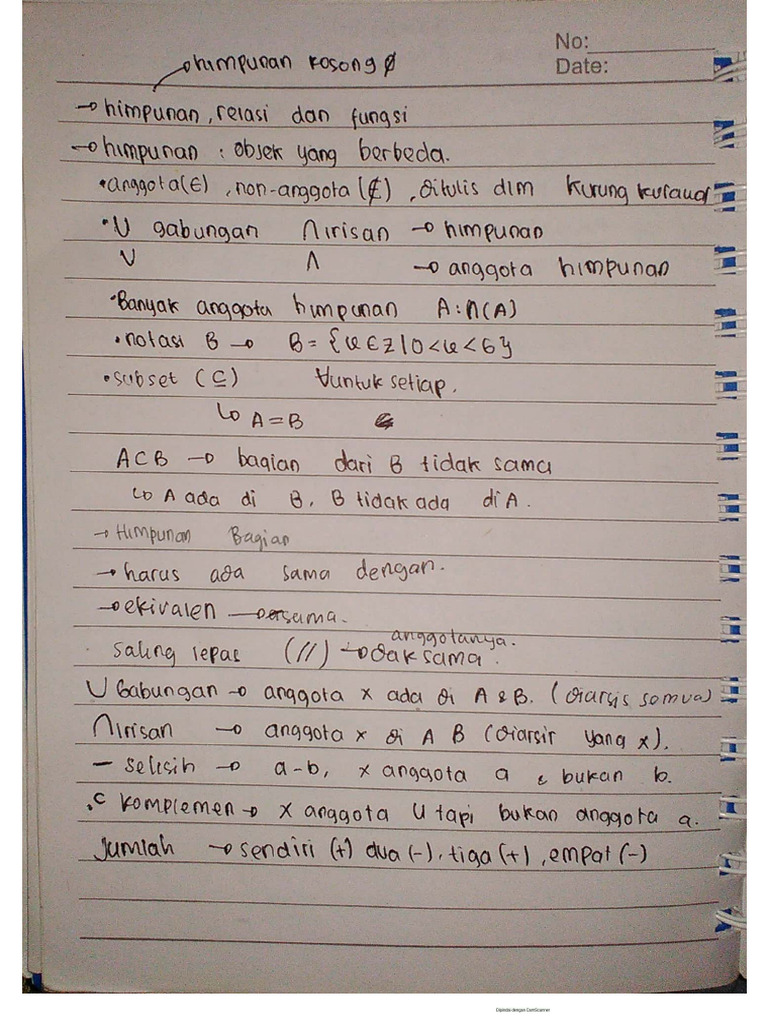 No:
Date:
→ himpunan kosong ∅
→ himpunan, relasi dan fungsi
→ himpunan : objek yang berbeda.
• anggota (∈), non-anggota (∉), ditulis dlm kurung kurawal
• ∪ gabungan ∩ irisan → himpunan
∨ ∧ → anggota himpunan
• Banyak anggota himpunan A : n(A)
• notasi B → B = {x ∈ z | 0 < x < 6}
• subset (⊆) ∀ untuk setiap.
↳ A = B
A ⊂ B → bagian dari B tidak sama
↳ A ada di B, B tidak ada di A.
→ Himpunan Bagian
→ harus ada sama dengan.
→ ekivalen → sama.
saling lepas (//) → anggotanya. dak sama.
∪ Gabungan → anggota x ada di A & B. (diarsis somua)
∩ irisan → anggota x di A B (diarsir yang x).
– selisih → a-b, x anggota a & bukan b.
.c komplemen → x anggota U tapi bukan anggota a.
Jumlah → sendiri (+) dua (-), tiga (+), empat (-)
Dipindai dengan CamScanner